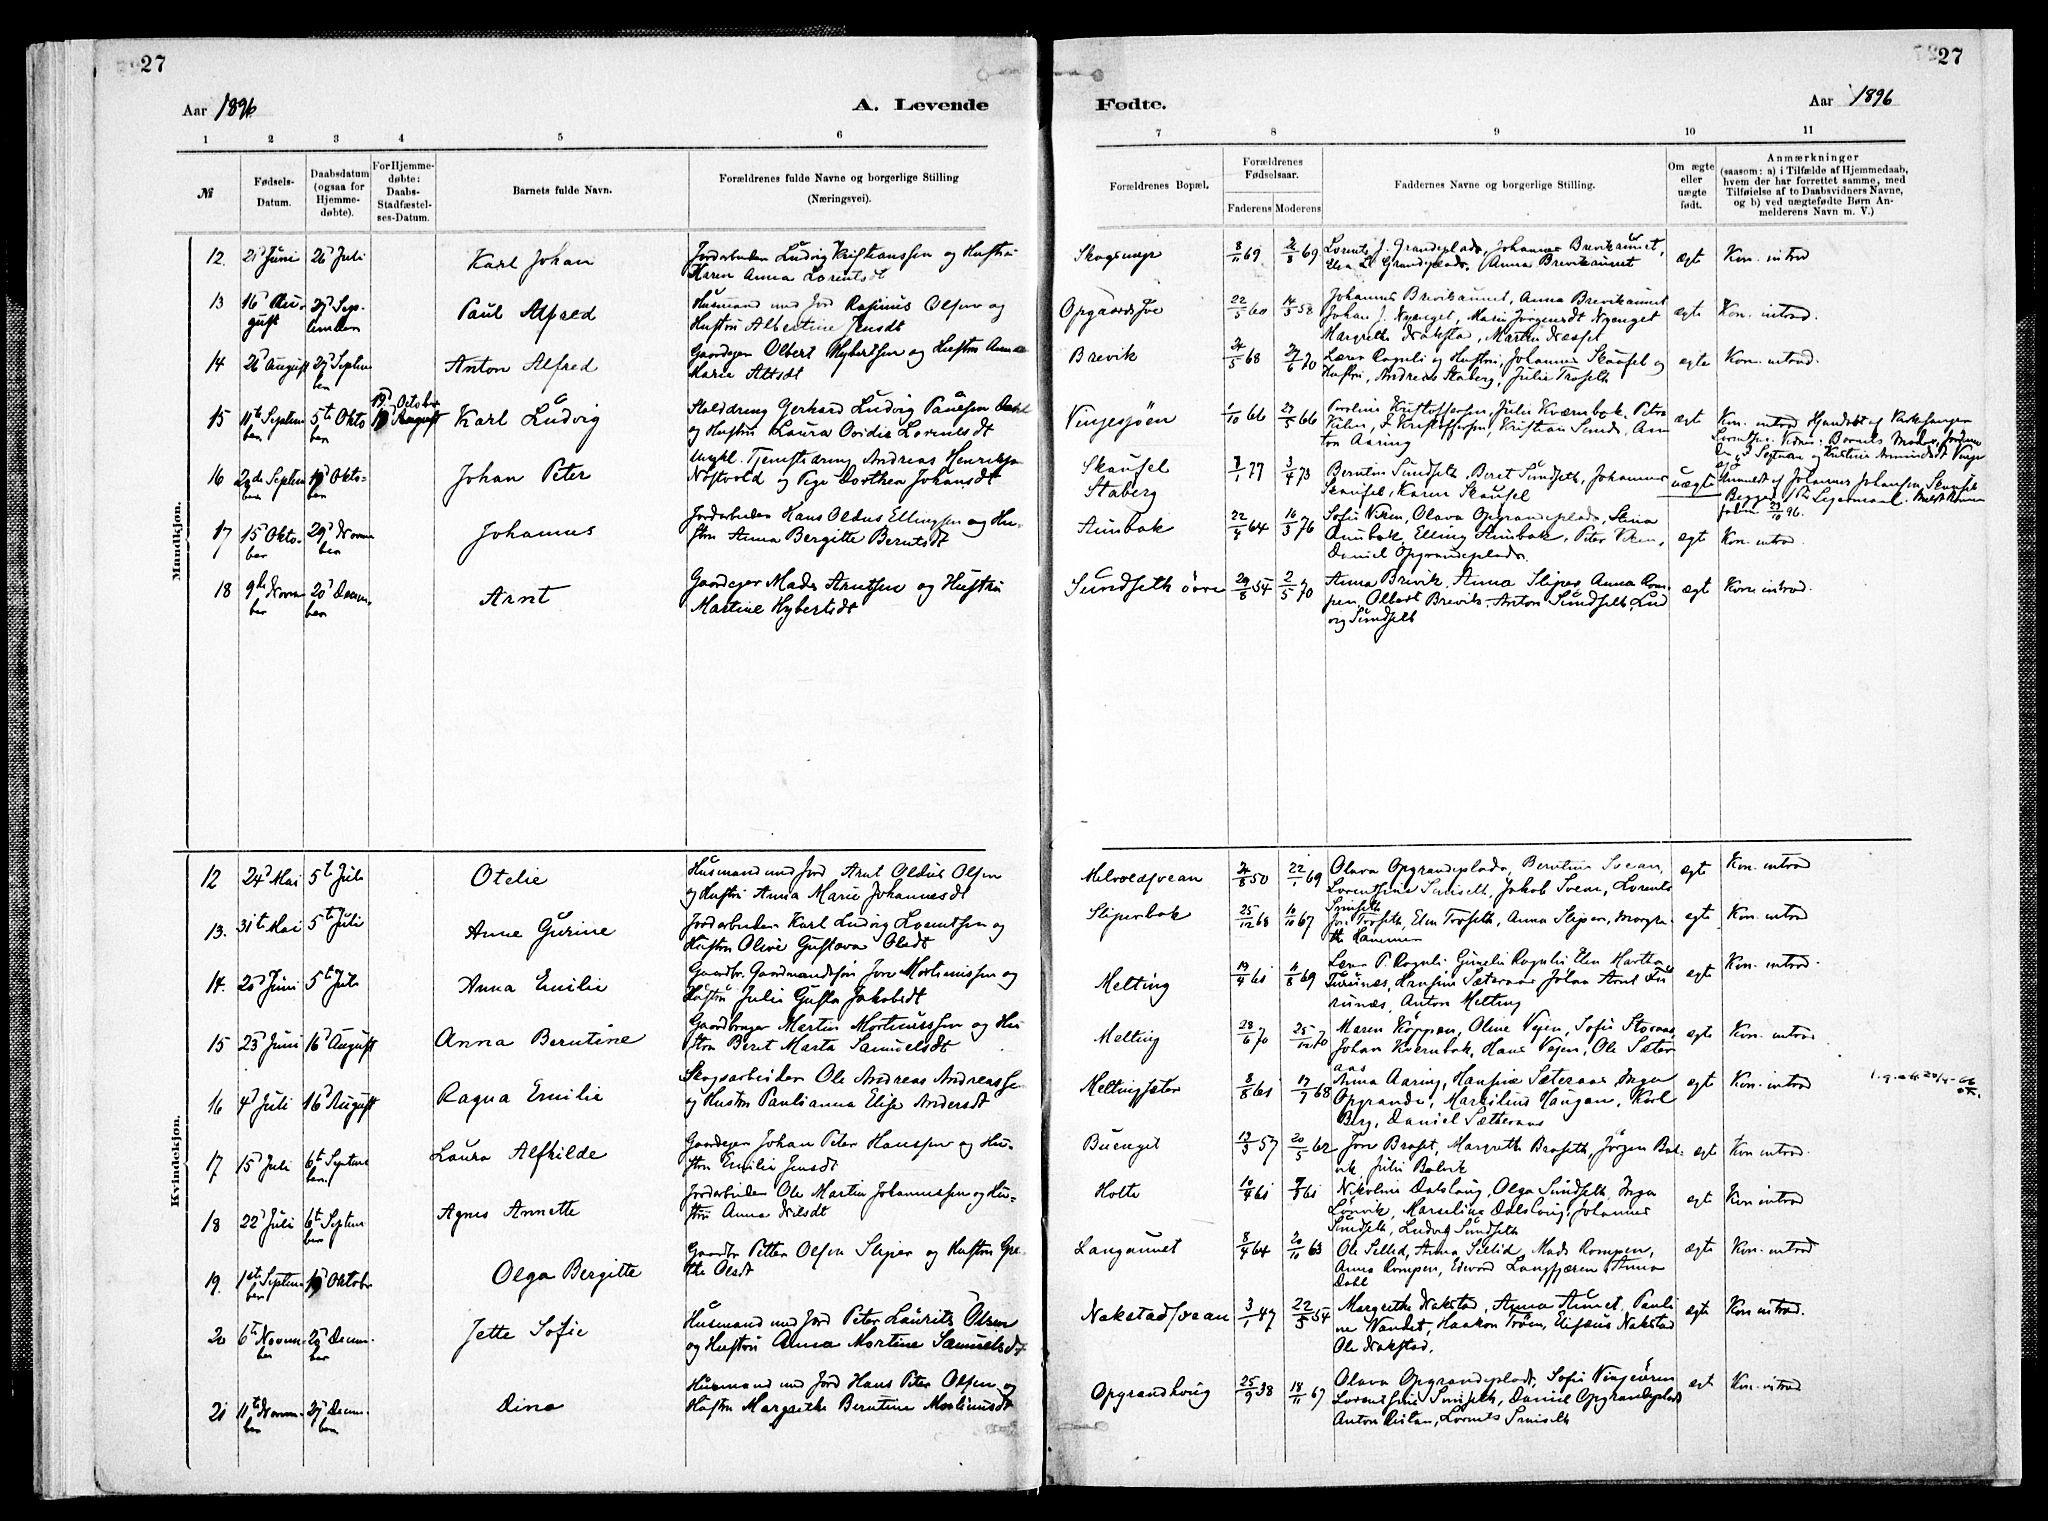 27
27
Aar 1896
A. Levende
Fødte.
Aar 1896
1 2 3 4 5 6
7 8 9 10 11
№
Fødsels-
Datum.
Daabsdatum
(ogsaa for
Hjemme-
døbte).
For Hjemme-
døbte:
Daabs-
Stadfæstel-
ses-Datum.
Barnets fulde Navn.
Forældrenes fulde Navne og borgerlige Stilling
(Næringsvei).
Forældrenes Bopæl.
Forældrenes
Fødselsaar.
Faderens Moderens
Faddernes Navne og borgerlige Stilling.
Om ægte
eller
uægte
født.
Anmærkninger
(saasom: a) i Tilfælde af Hjemmedaab,
hvem der har forrettet samme, med
Tilføielse af to Daabsvidners Navne,
og b) ved uægtefødte Børn An-
melderens Navn m. V.)
Mandkjøn.
12. 21 Juni 26 Juli Karl Johan
Jordarbeider Ludvig Kristianssen og Hustru
Karen Anna Lorentsdt
Skogsmyr 8/11 69 69
Lorents J. Grandeplads, Johannes Brevikaunet,
Elen L. Grandeplads, Anna Brevikaunet
ægte Kon. introd
13 16 Au-
gust
27 Sep-
tember
Paul Alfred
Husmand med Jord Rasmus Olsen og
Hustru Albertine Jensdt
Opgaardsøe 22/5 60 14/3 58
Johannes Brevikaunet, Anna Brevikaunet
Johan J. Nyenget, Maria Jørgensdt Nyenget
Margrethe Nakstad, Martin Næsset
ægte Kon. introd.
14 26 August 27 Septem
ber
Anton Alfred
Gaardeger Olbert Hybertsen og Hustru Anna
Marie Altsdt
Brevik 68 70
Lærer Rognli og Hustru, Johannes Skaufel og
Hustru, Andreas Staberg, Julie Troseth
ægte Kon. introd.
15 11te Septem
ber
5te Okto
ber
19 October
August
Karl Ludvig
Gerhard Ludvig Paulsen Dahl
og Hustru Laura Ovidia Lorentsdt
Vingesjøen 1/10 66 29/5 66
Pauline Kristoffersen, Julie Kværnbak, Petra
Vilen, F. Kristoffersen, Kristian Sunde, An
ton Aaring
ægt Kon. introd Hjemdøbt af Kirkesanger
16 2den Septem
ber
19 Okto-
ber
Johan Peter
Ungkl. Tjenestedreng Andreas Henriksen
Nøstvold og Pige Dorthea Johansdt
Skaufel
Staberg
77 3/4 73
Berntin Sundseth, Beret Sundseth, Johannes
Skaufel, Karen Skaufel
uægte
Anmeldt af Johannes Johansen Skaufel
Begges 1ste Leiermaal.
17 15 Okto-
ber
29 Novem
ber
Johannes
Jordarbeider Hans Oldus Ellingsen og Hu-
stru Anna Bergitte Berntsdt
Aunbak 22/4 64 16/3 76
Sofie Viken, Olava Opgrandeplads, Stina
Aunbak, Elling Aunbak, Peter Viken,
Daniel Opgrandeplads.
ægt Kon. introd.
18 9de Novem
ber
20 Decem-
ber
Arnt
Gaardeger Mads Arntsen og Hustru
Martine Hybertsdt
Sundseth øvre 29/8 54 2/5 70
Anna Brevik, Anna Slipes, Anna Rom-
pen, Olbert Brevik, Anton Sundseth, Lud
vig Sundseth
ægt Kone introd.
Kvindekjøn.
12 24 Mai 5te Juli Otelie
Husmand med Jord Arnt Oldus Olsen
og Hustru Anna Marie Johannesdt
Melvoldsvean 50 22/1 69
Olava Opgrandeplads, Berntine Svean,
Lorentsine Smiseth, Jakob Svean, Lorents
Smiseth
ægt Kon. introd
13. 31te Mai 5te Juli Anne Gurine
Jordarbeider Karl Ludvig Lorentsen og
Hustru Olive Gustava Olsdt
Sliperbak 25/12 68 11/10 67
Jon Troseth, Elen Troseth, Anna Sliper, Margre-
the Hammer
ægte Kon. introd
14. 20 Juni 5te Juli Anna Emilie
Gaardbr. Gaardmandssøn Jon Mortinussen og
Hustru Julie Gustava Jakobsdt
Melting 19/4 61 11/8 69
Lærer P. Rognli, Gunelie Rognli, Elen Martha
Furunæs, Hansine Sæteraas, Johan Arnt Fu
runæs, Anton Melting
ægt Kon. introd.
15 23 Juni 16 August Anna Berntine
Gaardbruger Martin Mortinussen og Hu
stru Beret Marta Samuelsdt
Melting 28/6 70 25/12 70
Maren Koppen, Oline Vejen, Sofie Storaas,
Johan Kvernbak, Hans Vejen, Ole Sæter
aas
ægt Kon. introd
16 4 Juli 16 August Ragna Emilie
Skogsarbeider Ole Andreas Andreassen
og Hustru Paulianna Elise Andersdt
Meltingsæter 8/8 61 17/7 68
Anna Aaring, Hansine Sæteraas, Inga
Opgrande, Marsilius Haugan, Karl
Berg, Daniel Sætheraas
ægt Kon. introd
17 15 Juli 6te Septem
ber.
Laura Alfhilde
Gaardeger Johan Peter Hanssen og Hu-
stru Emilie Jensdt
Buenget 13/3 57 20/5 62
Jon Braset, Margrethe Braseth, Jørgen Bal-
vik, Julie Balvik
ægt Kon introd.
18 22 Juli 6te Septem
ber
Agnes Annette
Jordarbeider Ole Martin Johannessen og Hu-
stru Anna Nilsdt
Holte 10/4 61 61
Nikoline Dalslaug, Olga Sundseth, Inga
Lønvik, Marseline Dalslaug, Johannes
Sundseth, Ludvig Sundseth
ægt Kon introd
19. 1ste Septem
ber
Oktober
Olga Bergitte
Gaardbr Petter Olsen Sliper og Hustru Gre-
the Olsdt
Langaunet 8/4 64 20/11 63
Ole Sellid, Anna Sellid, Mads Rompen,
Anna Rompen, Edvard Langfjæren, Anna
Dahl
ægte Kon. introd
20 6te Novem
ber
27 Decem-
ber
Jette Sofie
Husmand med Jord Peter Laurits Olsen
og Hustru Anna Mortine Samuelsdt
Nakstadsvean 3/1 47 22/3 54
Margrethe Nakstad, Anna Aunet, Pauli
ne Vandet, Haakon Trøen, Elisæus Nakstad
Ole Nakstad.
ægt Kon introd.
21 11te Novem-
ber
27 Decem-
ber
Dina
Husmand med Jord Hans Peter Olsen og
Hustru Margrethe Berntine Mortinusdt
Opgrandhaug 25/9 38 18/11 67
Olava Opgrandeplads, Sofie Vingeøren
Lorentsine Smiseth, Daniel Opgrandeplads
Anton Ristan, Lorents Smiseth
ægt Kon. introd